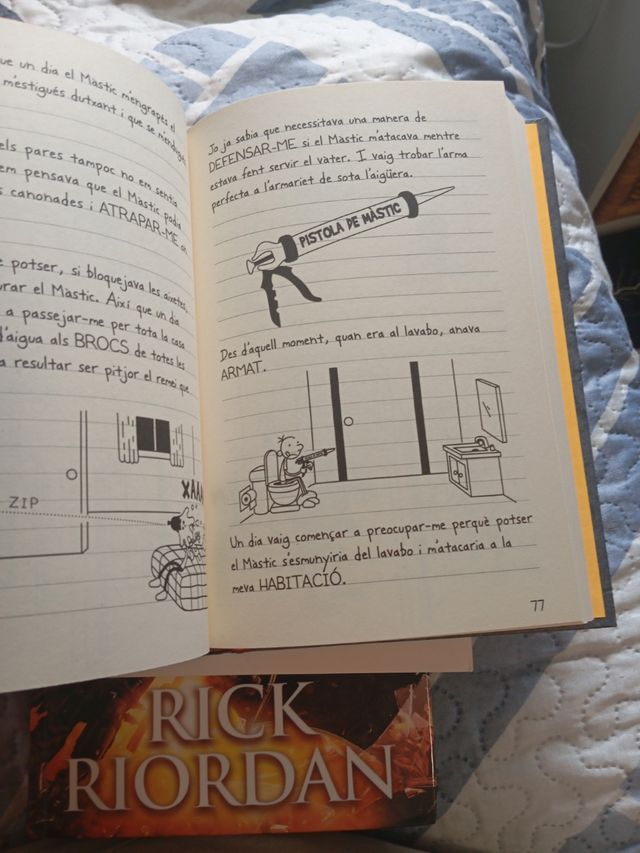 ue un dia el Màstic m'engrapés el
m'estigués dutxant i que se m'endugués
els pares tampoc no em sentia
em pensava que el Màstic podia
s canonades i ATRAPAR-ME
e potser, si bloquejava les aixetes,
urar el Màstic. Així que un dia
a passejar-me per tota la casa
d'aigua als BROCS de totes les
a resultar ser pitjor el remei que
ZIP
XAAA
Jo ja sabia que necessitava una manera de
DEFENSAR-ME si el Màstic m'atacava mentre
estava fent servir el vàter. I vaig trobar l'arma
perfecta a l'armariet de sota l'aigüera.
PISTOLA DE MÀSTIC
Des d'aquell moment, quan era al lavabo, anava
ARMAT.
Un dia vaig començar a preocupar-me perquè potser
el Màstic s'esmunyiria del lavabo i m'atacaria a la
meva HABITACIÓ.
77
RICK
RIORDAN